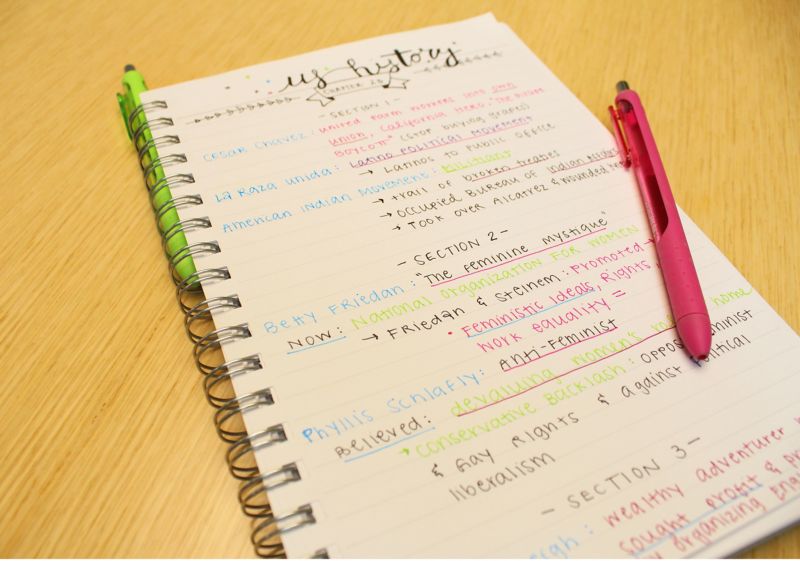 us history
CHAPTER
- SECTION 1 -
CESAR Chavez: united farm workers into own
union, California Hero, "The
Boycott" (stop buying grapes)
La Raza Unida: Latino Political Movement
→ Latinos to Public Office
American Indian Movement: Military
→ trail of broken treaties
→ Occupied Bureau of Indian Affairs
→ Took over Alcatrez & Wounded
- SECTION 2 -
Betty Friedan: "The feminine mystique"
NOW: National Organization for Women
→ Friedan & Steinem: Promoted →
• Feministic Ideals, Rights,
Work equality =
Phyllis Schlafly: Anti-Feminist
Believed: devaluing women's home
→ Conservative Backlash: feminist
& Gay Rights & against
liberalism
- SECTION 3 -
: wealthy adventurer
sought profit &
organizing